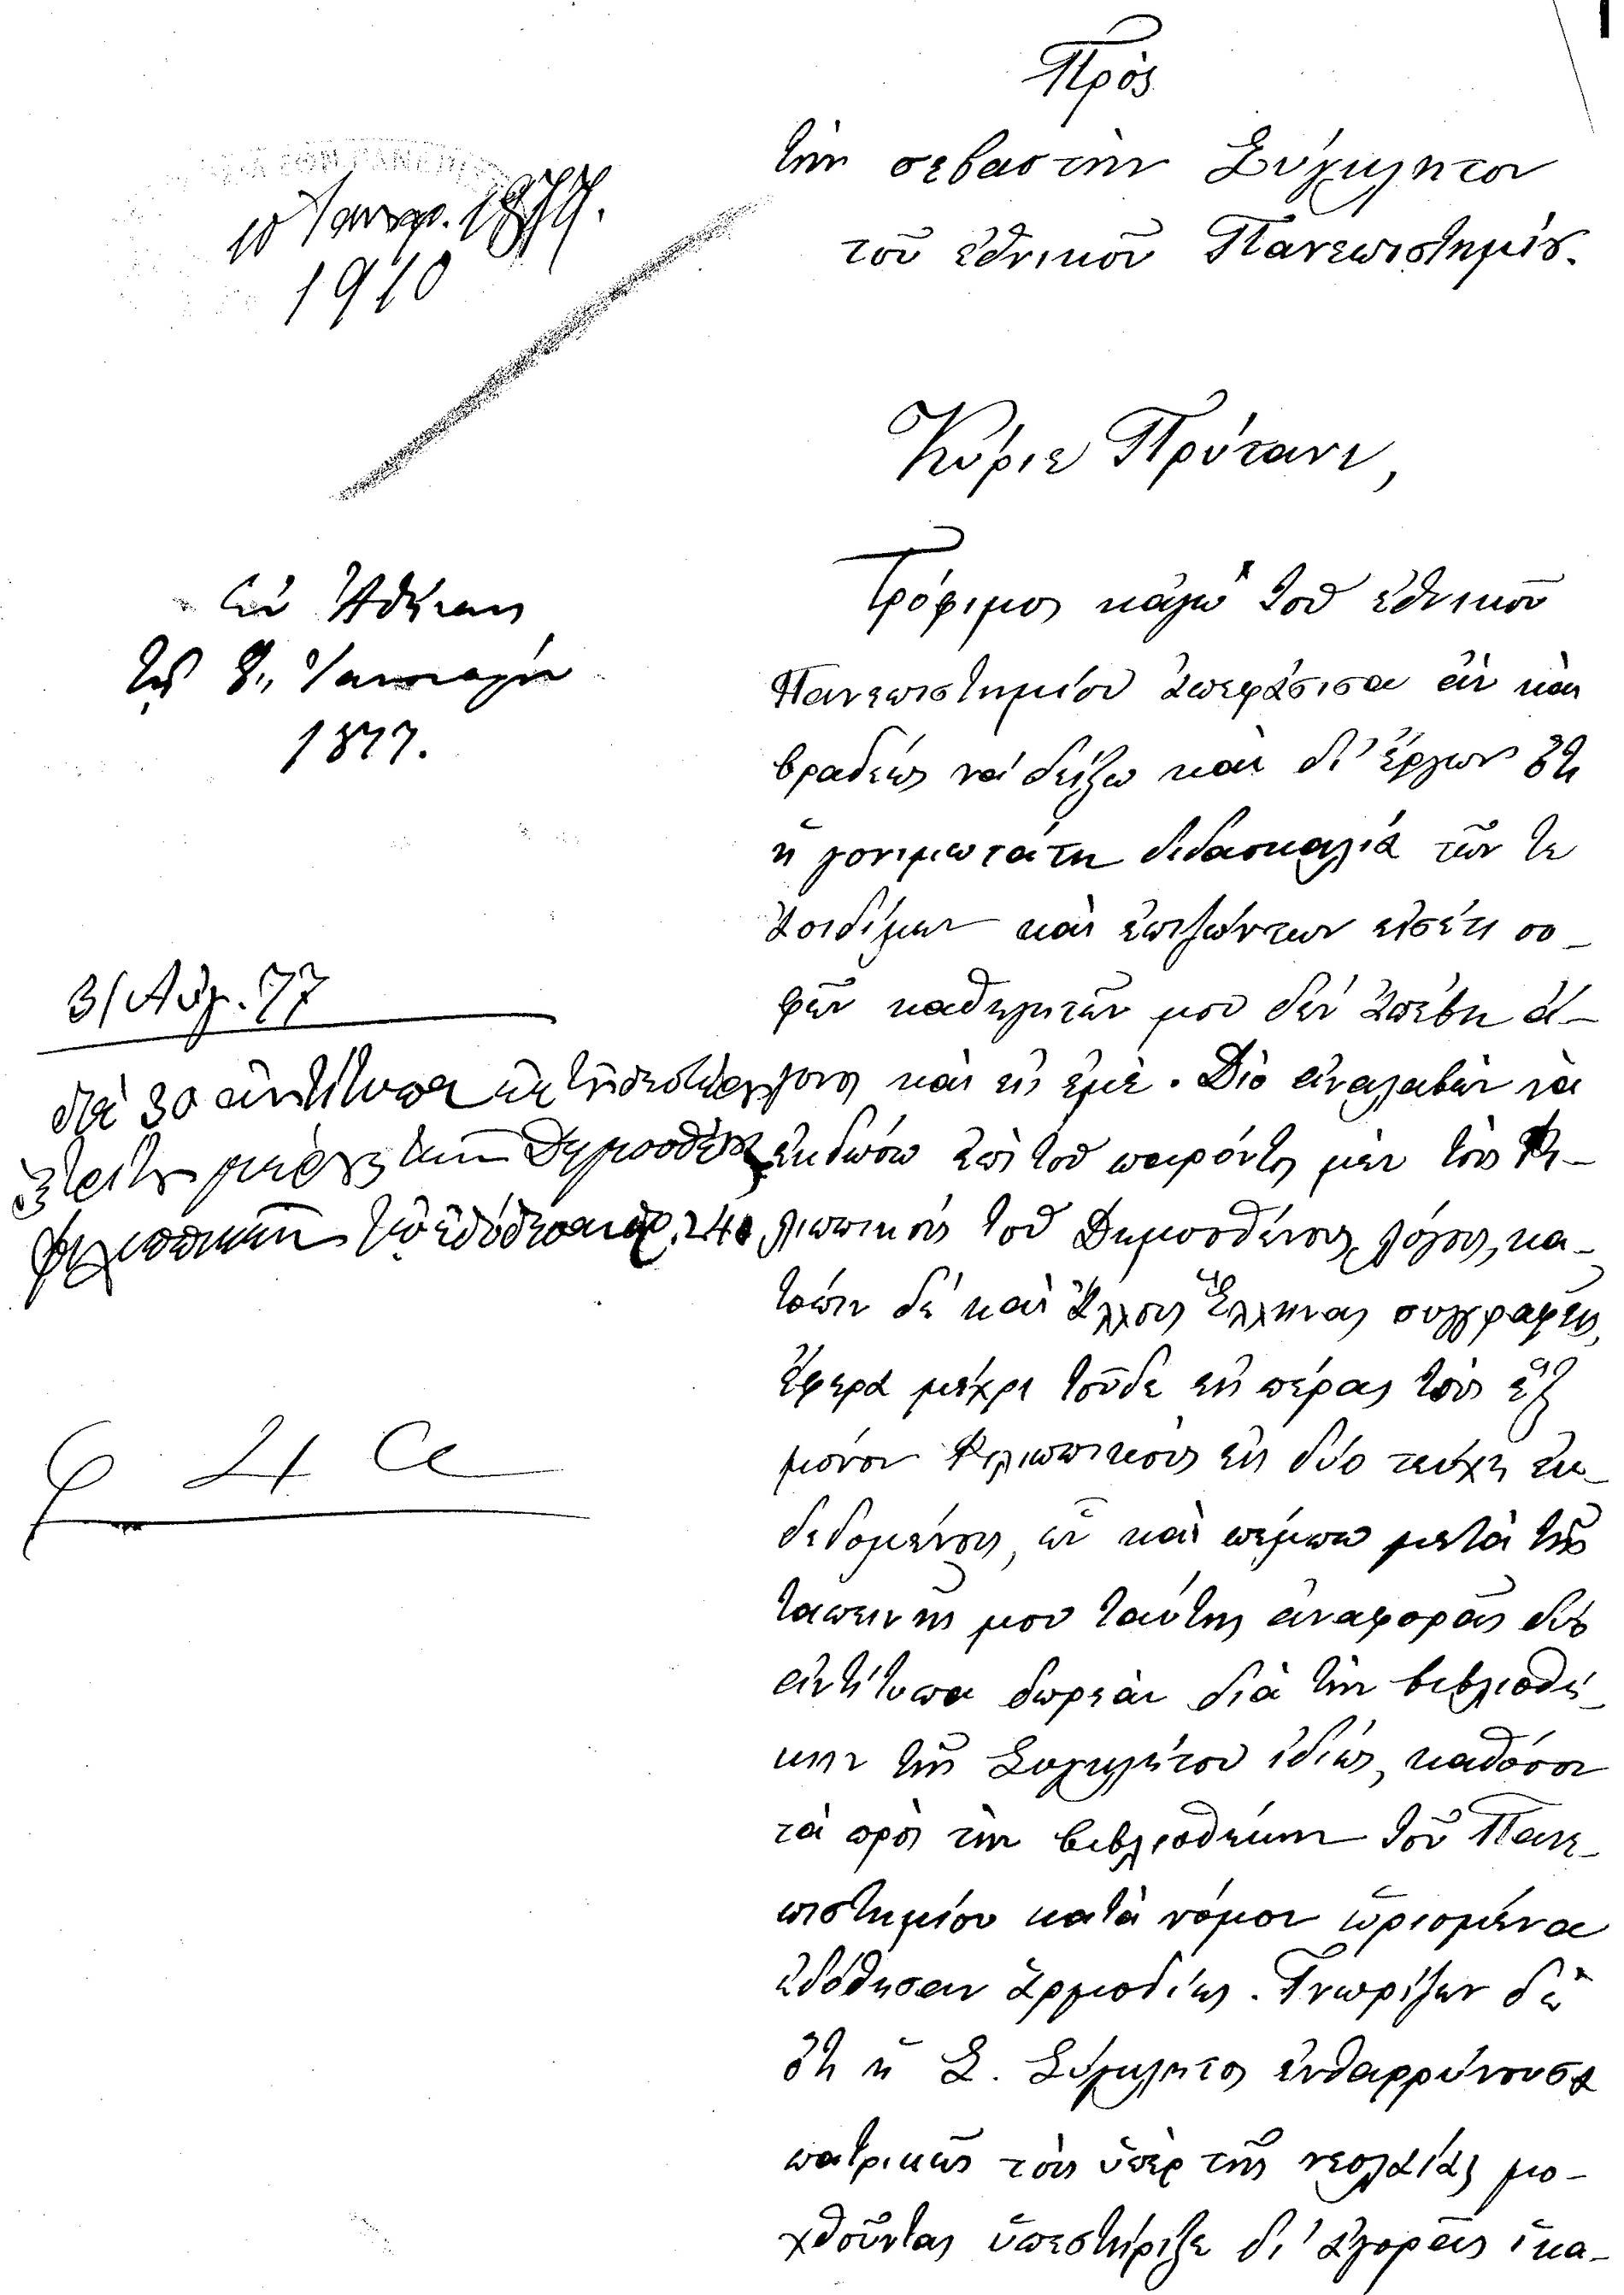 Πρὸς
τὴν σεβαστὴν Σύγκλητον
τοῦ ἐθνικοῦ Πανεπιστημίου.
10 Ἰανουαρ. 1877.
1910
Κύριε Πρύτανι,
Ἐν Ἀθήναις
τῇ 8ῃ Ἰανουαρίου
1877.
Τρόφιμος κἀγὼ τοῦ ἐθνικοῦ
Πανεπιστημίου ἀπεφάσισα ἂν καὶ
βραδέως νὰ δείξω καὶ δι' ἔργων ὅτι
ἡ γονιμωτάτη διδασκαλία τῶν τε
ἀοιδίμων καὶ ἐπιζώντων εἰσέτι σο-
φῶν καθηγητῶν μου δὲν ἀπέβη ἄ-
γονος καὶ εἰς ἐμέ. Διὸ ἀναλαβὼν νὰ
ἐκδώσω ἐπὶ τοῦ παρόντος μὲν τοὺς Φι-
λιππικοὺς τοῦ Δημοσθένους λόγους, κα-
τόπιν δὲ καὶ ἄλλους Ἕλληνας συγγραφεῖς,
ἔφερα μέχρι τοῦδε εἰς πέρας τοὺς ἓξ
μόνον Φιλιππικοὺς εἰς δύο τεύχη ἐκ-
δεδομένους, ὧν καὶ πέμπω μετὰ τῆς
ταπεινῆς μου ταύτης ἀναφορᾶς δύο
ἀντίτυπα δωρεὰν διὰ τὴν βιβλιοθή-
κην τῆς Συγκλήτου ἰδίως, καθόσον
τὰ πρὸς τὴν βιβλιοθήκην τοῦ Πανε-
πιστημίου κατὰ νόμον ὡρισμένα
ἐδόθησαν ἁρμοδίως. Γνωρίζων δὲ
ὅτι ἡ Σ. Σύγκλητος ἐνθαρρύνουσα
πατρικῶς τοὺς ὑπὲρ τῆς νεολαίας μο-
χθοῦντας ὑπεστήριξε δι' ἀγορᾶς ἱκα-
31 Αὐγ. 77
διὰ 30 ἀντίτυπα
μέρος τῶν Δημοσθένους
Φιλιππικῶν ἐδόθησαν δρ. 240